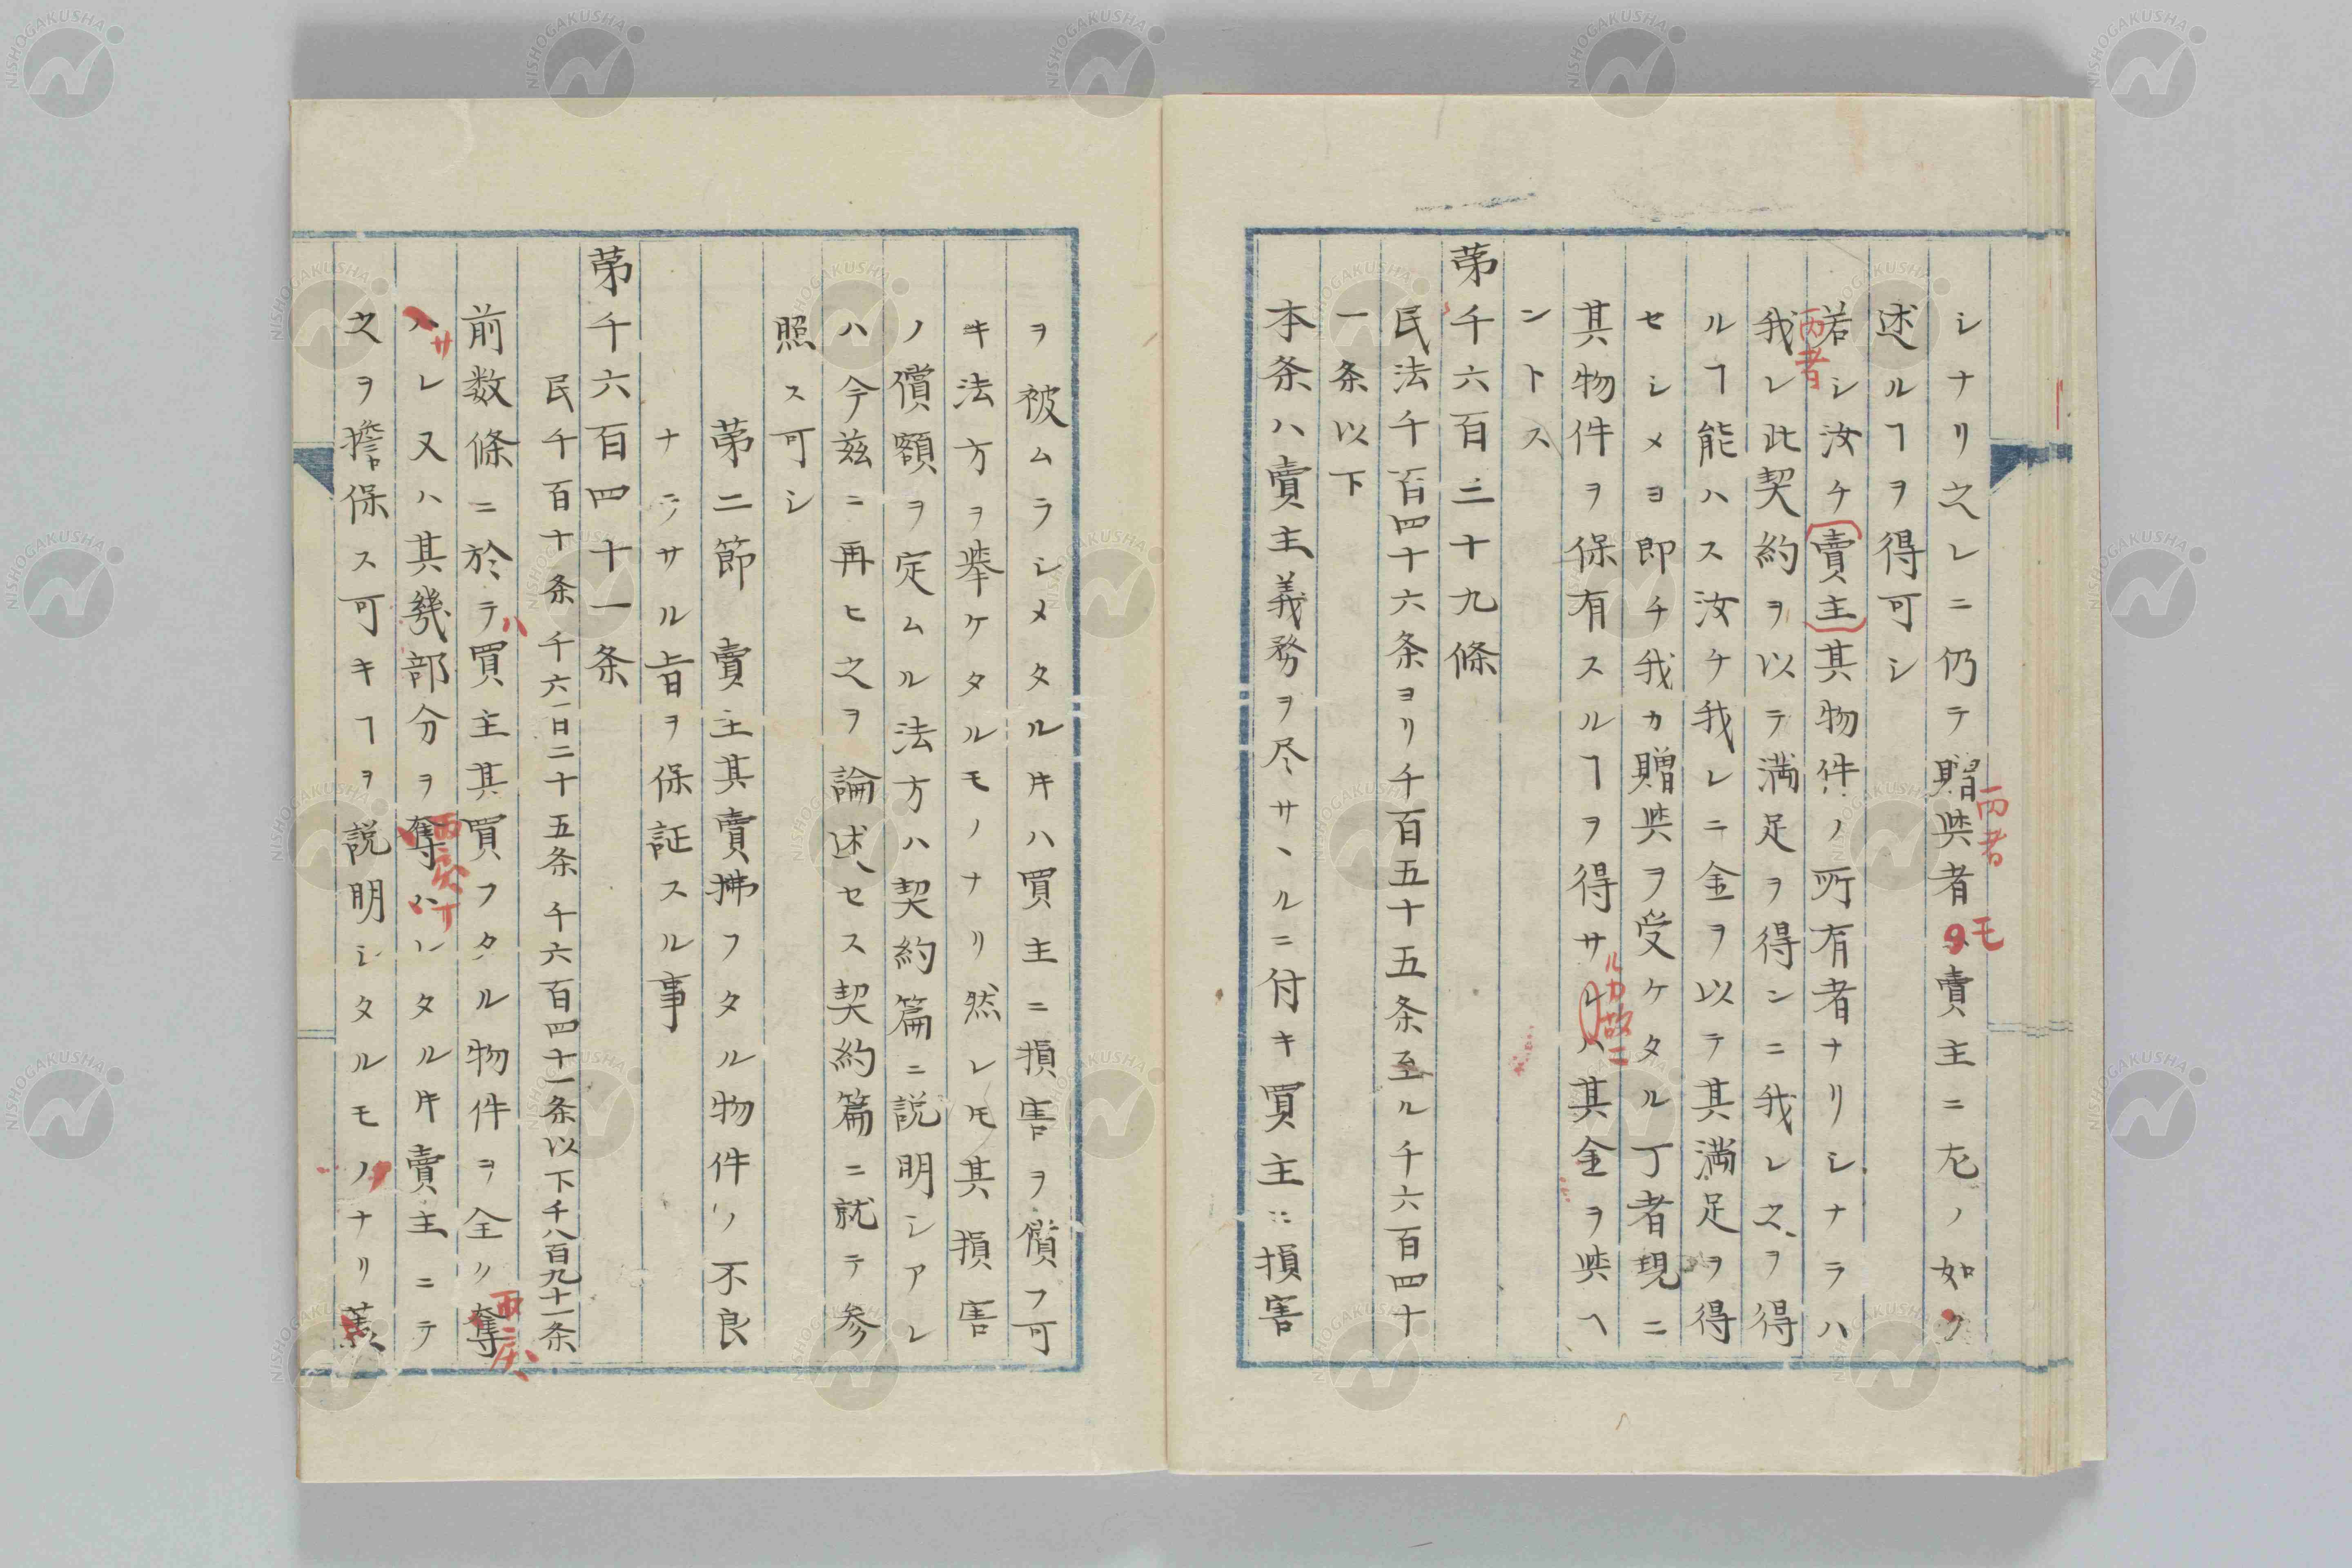 シナリ之レニ仍テ贈與者ハ賣主ニ左ノ如ク
丙者
モ
述ルヿヲ得可シ
若シ汝チ賣主其物件ノ所有者ナリシナラハ
丙者
我レ此契約ヲ以テ満足ヲ得ンニ我レ之ヲ得
ルヿ能ハス汝チ我レニ金ヲ以テ其満足ヲ得
セシメヨ即チ我カ贈與ヲ受ケタル丁者現ニ
其物件ヲ保有スルヿヲ得サルハ其金ヲ與ヘ
ルカ故ニ
ントス
苐千六百三十九條
民法千百四十六条ヨリ千百五十五条至ル千六百四十
一条以下
本条ハ賣主義務ヲ尽サヽルニ付キ買主ニ損害
ヲ被ムラシメタル𪜈ハ買主ニ損害ヲ償フ可
キ法方ヲ挙ケタルモノナリ然レ𪜈其損害
ノ償額ヲ定ムル法方ハ契約篇ニ説明シアレ
ハ今茲ニ再ヒ之ヲ論述セス契約篇ニ就テ参
照ス可シ
苐二節 賣主其賣拂フタル物件ノ不良
ナラサル旨ヲ保証スル事
苐千六百四十一条
民千百十条 千六百二十五条 千六百四十一条以下千八百九十一条
前数條ニ於テ買主其買フタル物件ヲ全ク奪
ハ
ハレ又ハ其幾部分ヲ奪ハレタル𪜈賣主ニテ
サ
之ヲ擔保ス可キヿヲ説明シタルモノナリ蓋